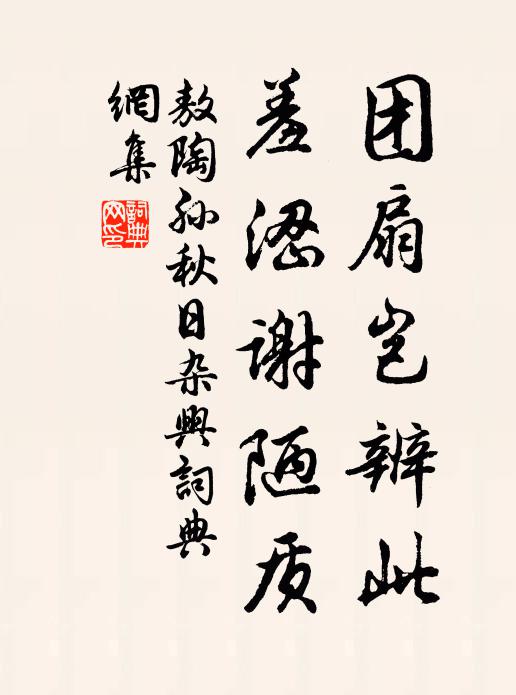 团扇岂辨此
羞涩谢陋质
敖陶孙秋日杂興詞典
網集
詞典
网印